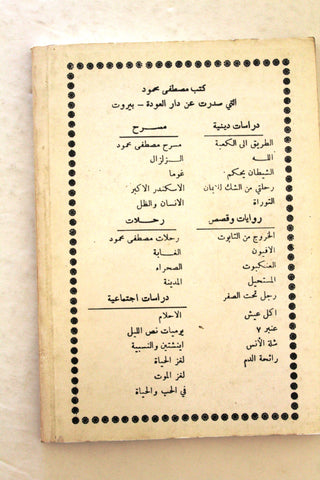 كتب مصطفى محمود
التي صدرت عن دار العودة - بيروت
دراسات دينية
الطريق الى الكعبة
الله
الشيطان يحكم
رحلتي من الشك للإيمان
التوراة
روايات وقصص
الخروج من التابوت
الافيون
العنكبوت
المستحيل
رجل تحت الصفر
اكل عيش
عنبر ٧
شلة الأنس
رائحة الدم
مسرح
مسرح مصطفى محمود
الزلزال
غوما
الاسكندر الاكبر
الانسان والظل
رحلات
رحلات مصطفى محمود
الغابة
الصحراء
المدينة
دراسات اجتماعية
الاحلام
يوميات نص الليل
اينشتين والنسبية
لغز الحياة
لغز الموت
في الحب والحياة